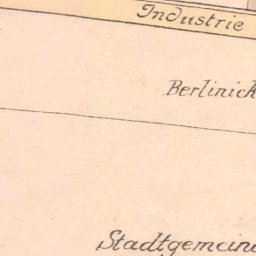 Industrie
Berlinick
Stadtgemein